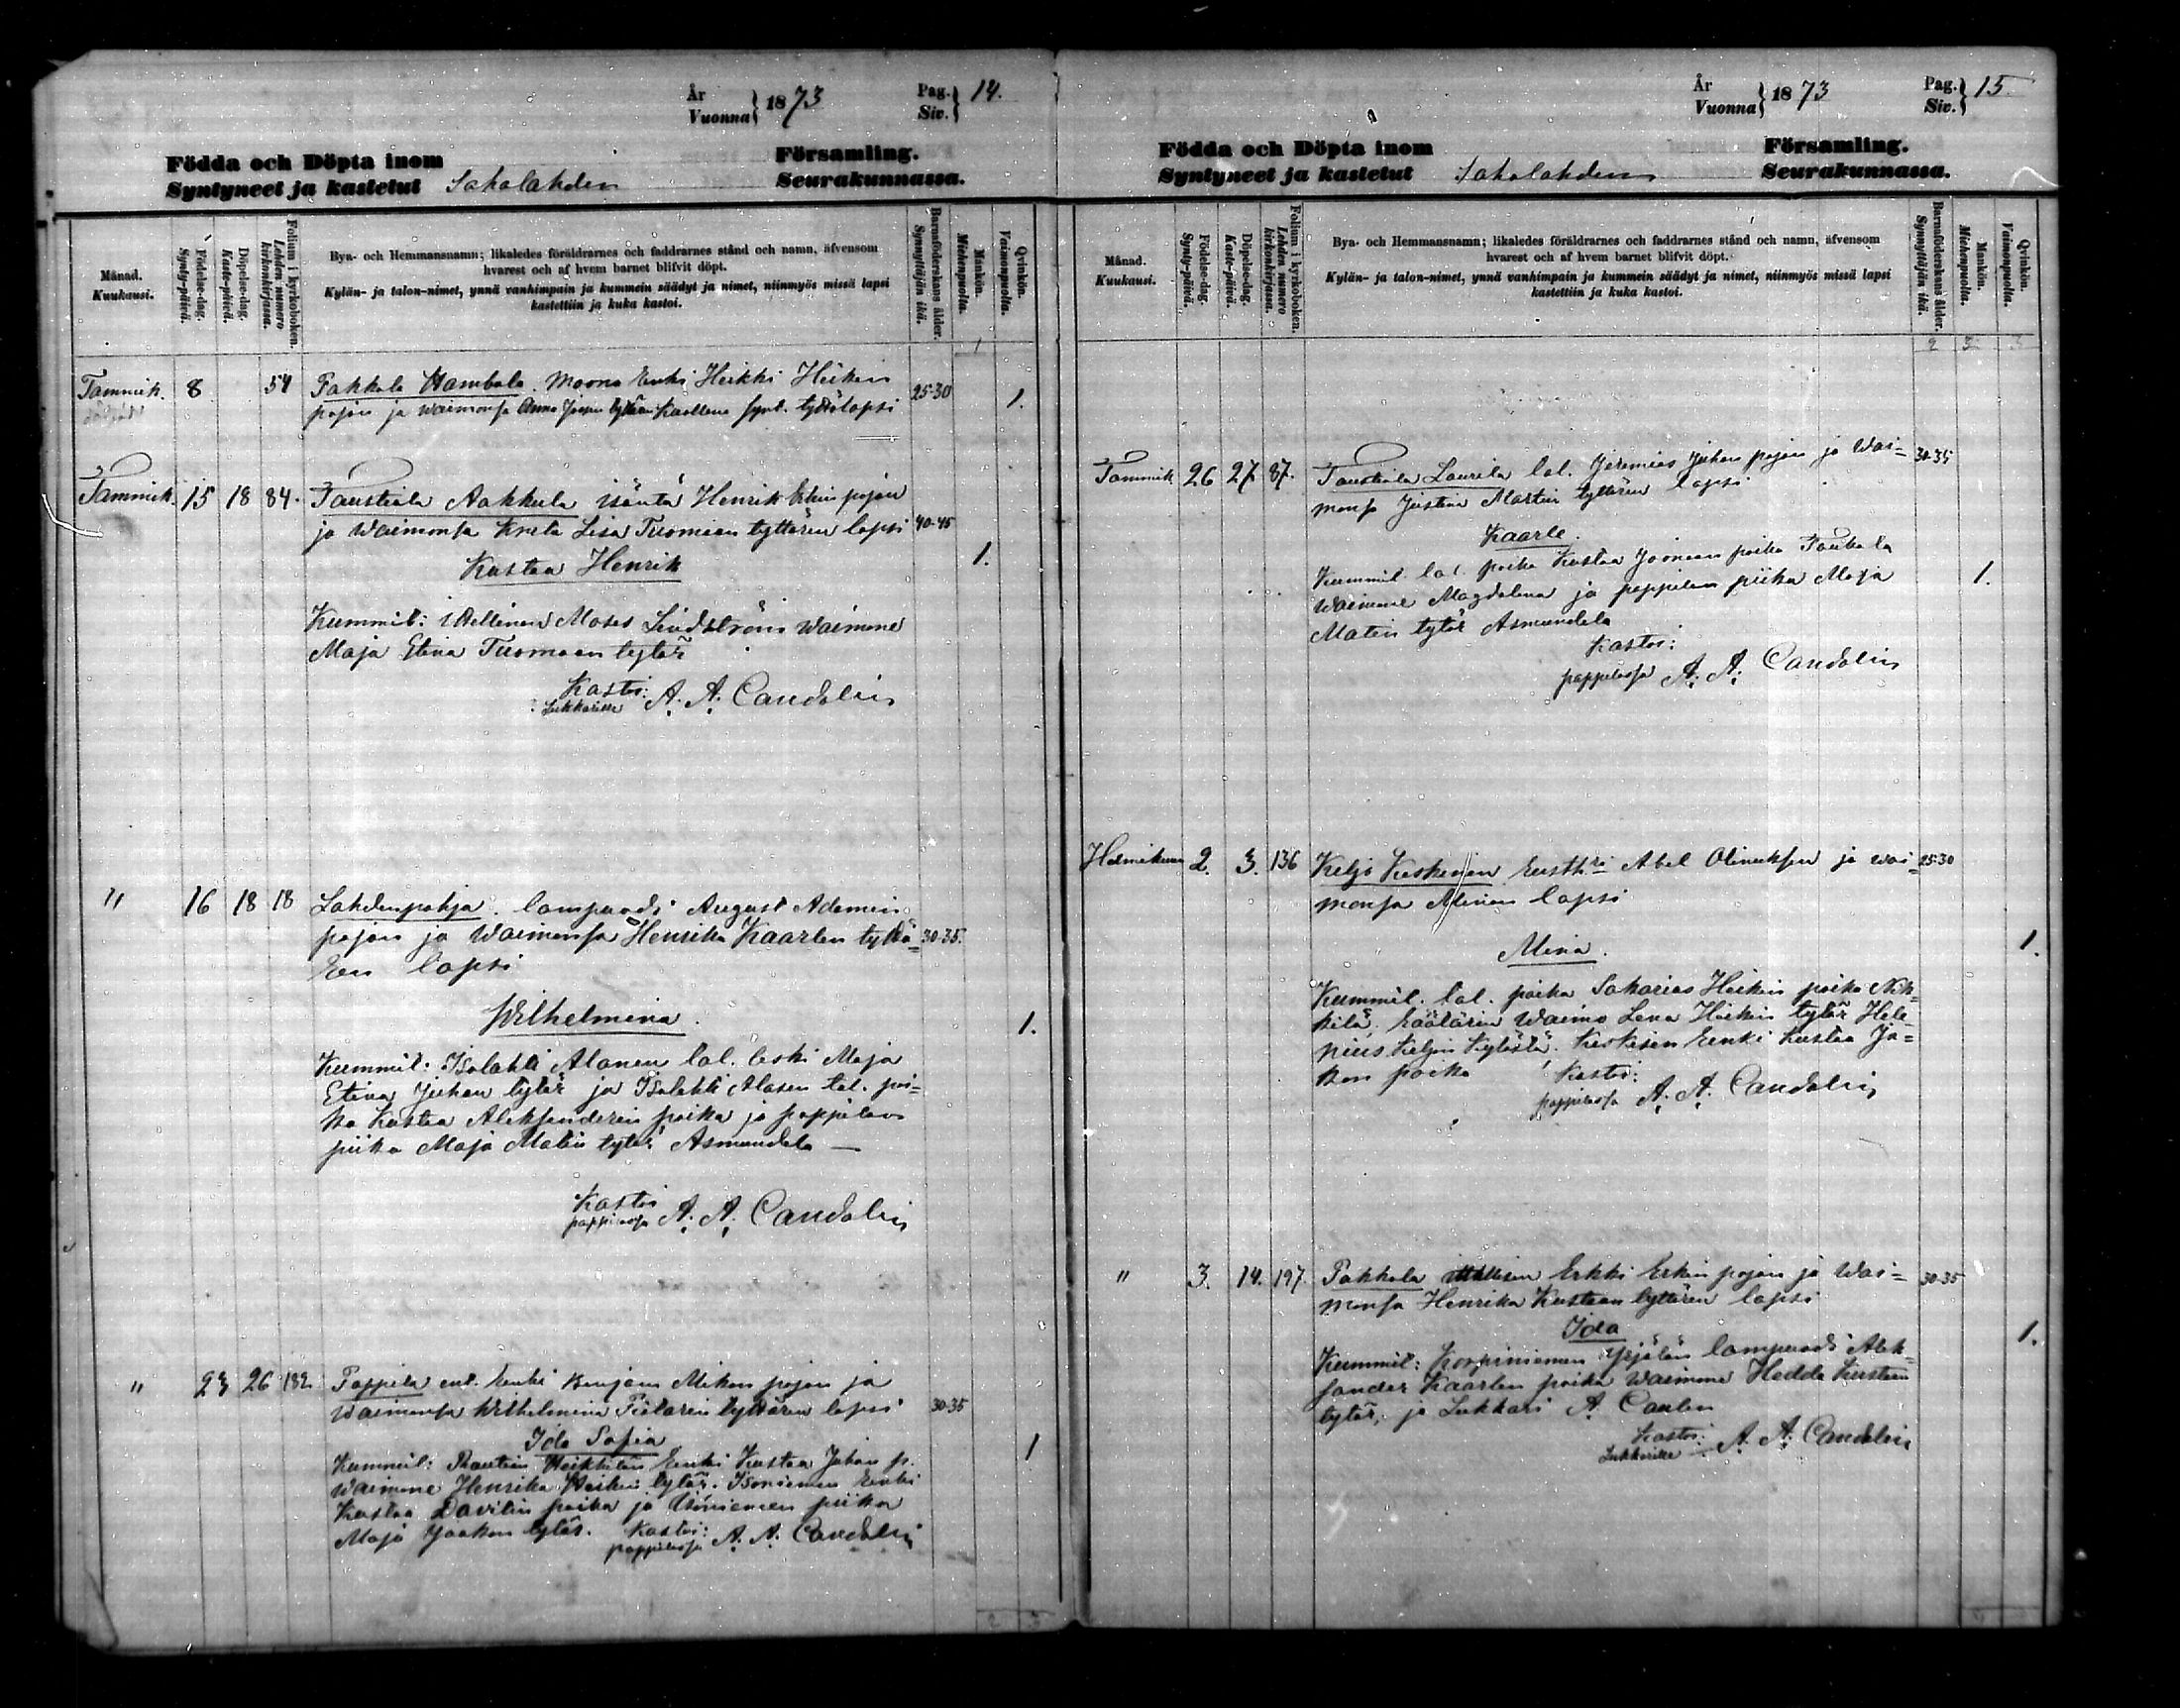 År
Vuonna } 1873 Pag.
Siv. } 14.
Födda och Döpta inom Församling.
Syntyneet ja kastetut Sahalahden Seurakunnassa.
Månad.
Kuukausi.
Födelse-dag.
Synty-päivä.
Döpelse-dag.
Kaste-päivä.
Folium i kyrkoboken.
Lehden numero kirkonkirjassa.
Bya- och Hemmansnamn; likaledes föräldrarnes och faddrarnes stånd och namn, äfvensom
hvarest och af hvem barnet blifvit döpt.
Kylän- ja talon-nimet, ynnä vanhimpain ja kummein säädyt ja nimet, niinmyös missä lapsi
kastettiin ja kuka kastoi.
Barnföderskans ålder.
Synnyttäjän ikä.
Mankön.
Miehenpuolta.
Qvinkön.
Vaimonpuolta.
Tammik. 8 54 Pakkala Hambala. Moona Enki Heikki Heikin 25-30
pojan ja waimonsa Anna tyttölapsi 1.
Tammik. 15 18 84. Taustiala Aakkula isäntä Henrik Erkin pojan
ja Waimonsa Kreta Lisa Tuomaan tyttären lapsi 40-45
Kustaa Henrik 1.
Kummit: itsellinen Moses Lindströmin waimone
Maja Stina Tuomaan tytär
Kastoi:
Lukkarille A. A. Candolin
" 16 18 18 Lahdenpohja. lampuodi August Adamin
pojan ja Waimonsa Henrika Kaarlen tyttä= 30-35.
ren lapsi
Wilhelmina. 1.
Kummit: Isolahti Alanen tal. leski Maja
Stina Juhan tytär ja Isolahti Alasen tal. poi=
ka Kustaa Aleksanderin poika ja pappilan
piika Maja Matin tytär Asmundela —
Kastoi
pappilassa A. A. Candolin
" 23 26 182 Pappila ent. Renki Benjam Mikon pojan ja
waimonsa Wilhelmina tyttären lapsi 30-35
Ida Sofia 1
Kummit: Rautun Heikkilän Renki Kustaa Johan p.
waimone Henrika Heikin tytär. Isoniemen Renki
Kustaa Davitin poika ja piika
Maja Jaakon tytär. Kastoi:
pappilassa A. A. Candolin
År
Vuonna } 1873 Pag.
Siv. } 15
Födda och Döpta inom Församling.
Syntyneet ja kastetut Sahalahden Seurakunnassa.
Månad.
Kuukausi.
Födelse-dag.
Synty-päivä.
Döpelse-dag.
Kaste-päivä.
Folium i kyrkoboken.
Lehden numero kirkonkirjassa.
Bya- och Hemmansnamn; likaledes föräldrarnes och faddrarnes stånd och namn, äfvensom
hvarest och af hvem barnet blifvit döpt.
Kylän- ja talon-nimet, ynnä vanhimpain ja kummein säädyt ja nimet, niinmyös missä lapsi
kastettiin ja kuka kastoi.
Barnföderskans ålder.
Synnyttäjän ikä.
Mankön.
Miehenpuolta.
Qvinkön.
Vaimonpuolta.
Tammik 26 27. 87. Taustiala Laurila tal. Jeremias Juhan pojan ja Wai= 30-35
monsa Justina Martin tyttären lapsi
Kaarle.
Kummit. tal. poika Kustaa Joonaan poika 1.
waimone Magdalena ja pappilan piika Maja
Matin tytär Asmundela
Kastoi:
pappilassa A. A. Candolin
Helmikuun 2. 3. 136 Keljo Keskinen Abel ja wai= 25-30
monsa lapsi
Mina. 1.
Kummit. tal. poika Sakarias Heikin poika Nik=
kilä, Räätärin Waimo Lena Heikin tytär Hele=
nius Keljon Kylästä. Keskisen Renki Kustaa Ja=
kon poika Kastoi:
pappilassa A. A. Candolin
" 3. 14. 197. Pakkala Erkki Erkin pojan ja Wai= 30-35
monsa Henrika Kustaan tyttären lapsi
Ida 1.
Kummit: Korpiniemen Yrjölän lampuodi Alek=
sander Kaarlen poika waimone Hedda Kustaan
tytär, ja Lukkari A.
Kastoi:
Lukkarille A. A. Candolin